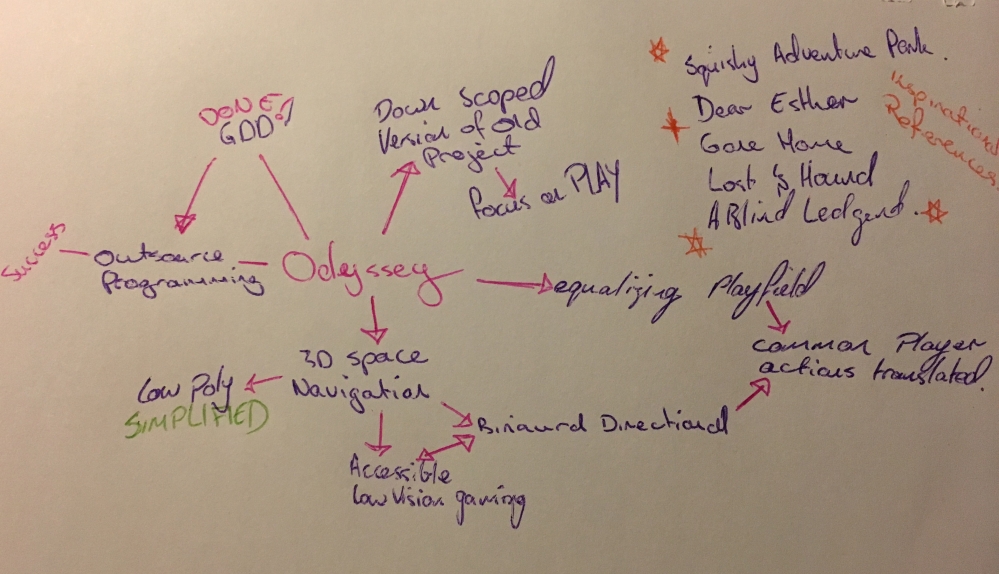 Squishy Adventure Park.
Dear Esther
Gone Home
Lost & Hound
A Blind Ledgend.
Inspirational
References
DONE?!
GDD
Down Scoped
Version of Old
Project
Focus on PLAY
Success
Outsource
Programming
Odyssey
equalizing Playfield
common Player
actions translated.
3D space
Navigation
Low Poly
SIMPLIFIED
Binaural Directional
Accessible
Low Vision gaming